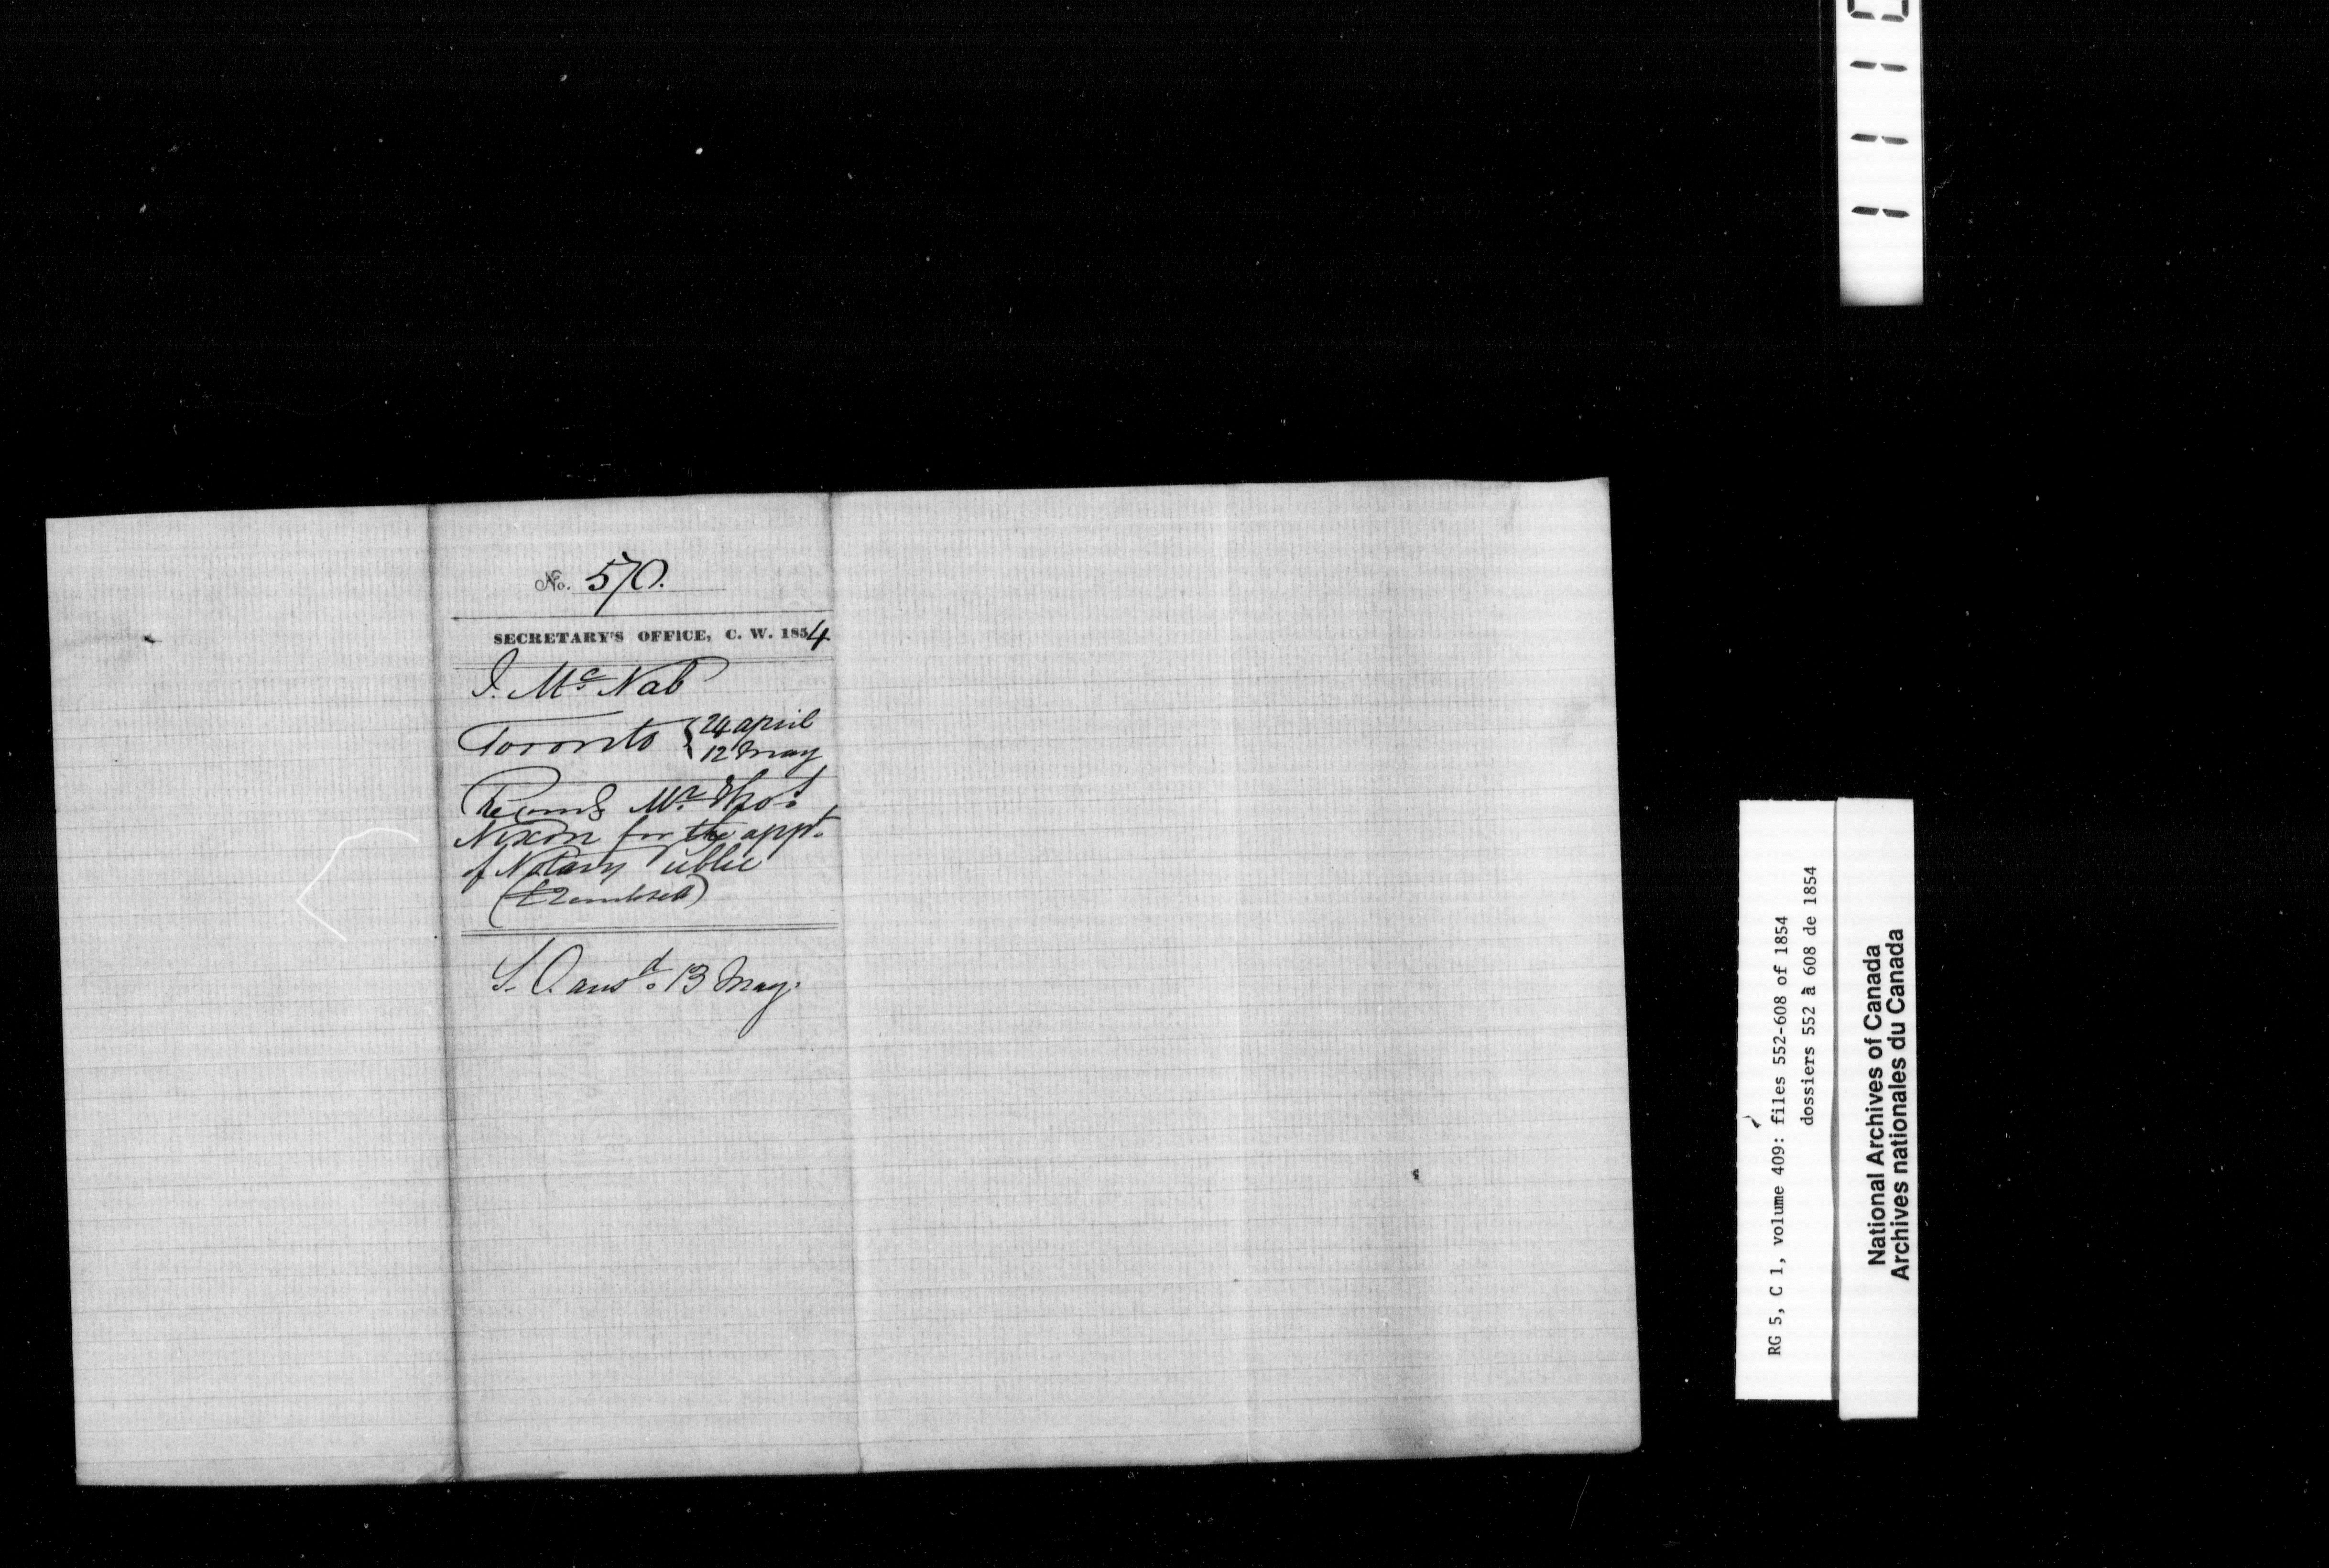 No. 570.
SECRETARY'S OFFICE, C. W. 1854
J. Mc Nab
Toronto { 24 april
12 May
Recomds Mr. Thos
Nixon for the appt.
of Notary Public
(£2 enclosed)
S. O. ansd. 13 May.
RG 5, C 1, volume 409: files 552-608 of 1854
dossiers 552 à 608 de 1854
National Archives of Canada
Archives nationales du Canada